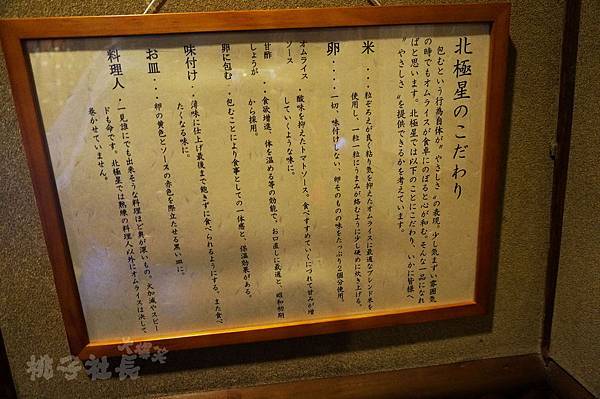 北極星のこだわり
包むという行為自体が〝やさしさ〟の表現。少し気まずい雰囲気
の時でもオムライスが食卓にのぼると心が和む。そんな一品になれ
ばと思います。北極星では以下のことにこだわり、いかに皆様へ
〝やさしさ〟を提供できるかを考えています。
米・・・粒ぞろえが良く粘り気を抑えたオムライスに最適なブレンド米を
使用し、一粒一粒にうまみが絡むように少し硬めに炊き上げる。
卵・・・・一切、味付けしない、卵そのものの味をたっぷり2個分使用。
オムライス
ソース
・酸味を抑えたトマトソース。食べすすめていくにつれて甘みが増
していくような味に。
甘酢
しょうが
・・食欲増進、体を温める等の効能で、お口直しに最適と、昭和初期
から採用。
卵に包む・・包むことにより食事としての一体感と、保温効果がある。
味付け・・薄味に仕上げ最後まで飽きずに食べられるようにする。また食べ
たくなる味に。
お皿・・・卵の黄色とソースの赤色を際立たせる黒い皿に。
料理人・・一見誰にでも出来そうな料理ほど奥が深いもの。火加減やスピー
ドも命です。北極星では熟練の料理人以外にオムライスは決して
巻かせていません。
桃子社長